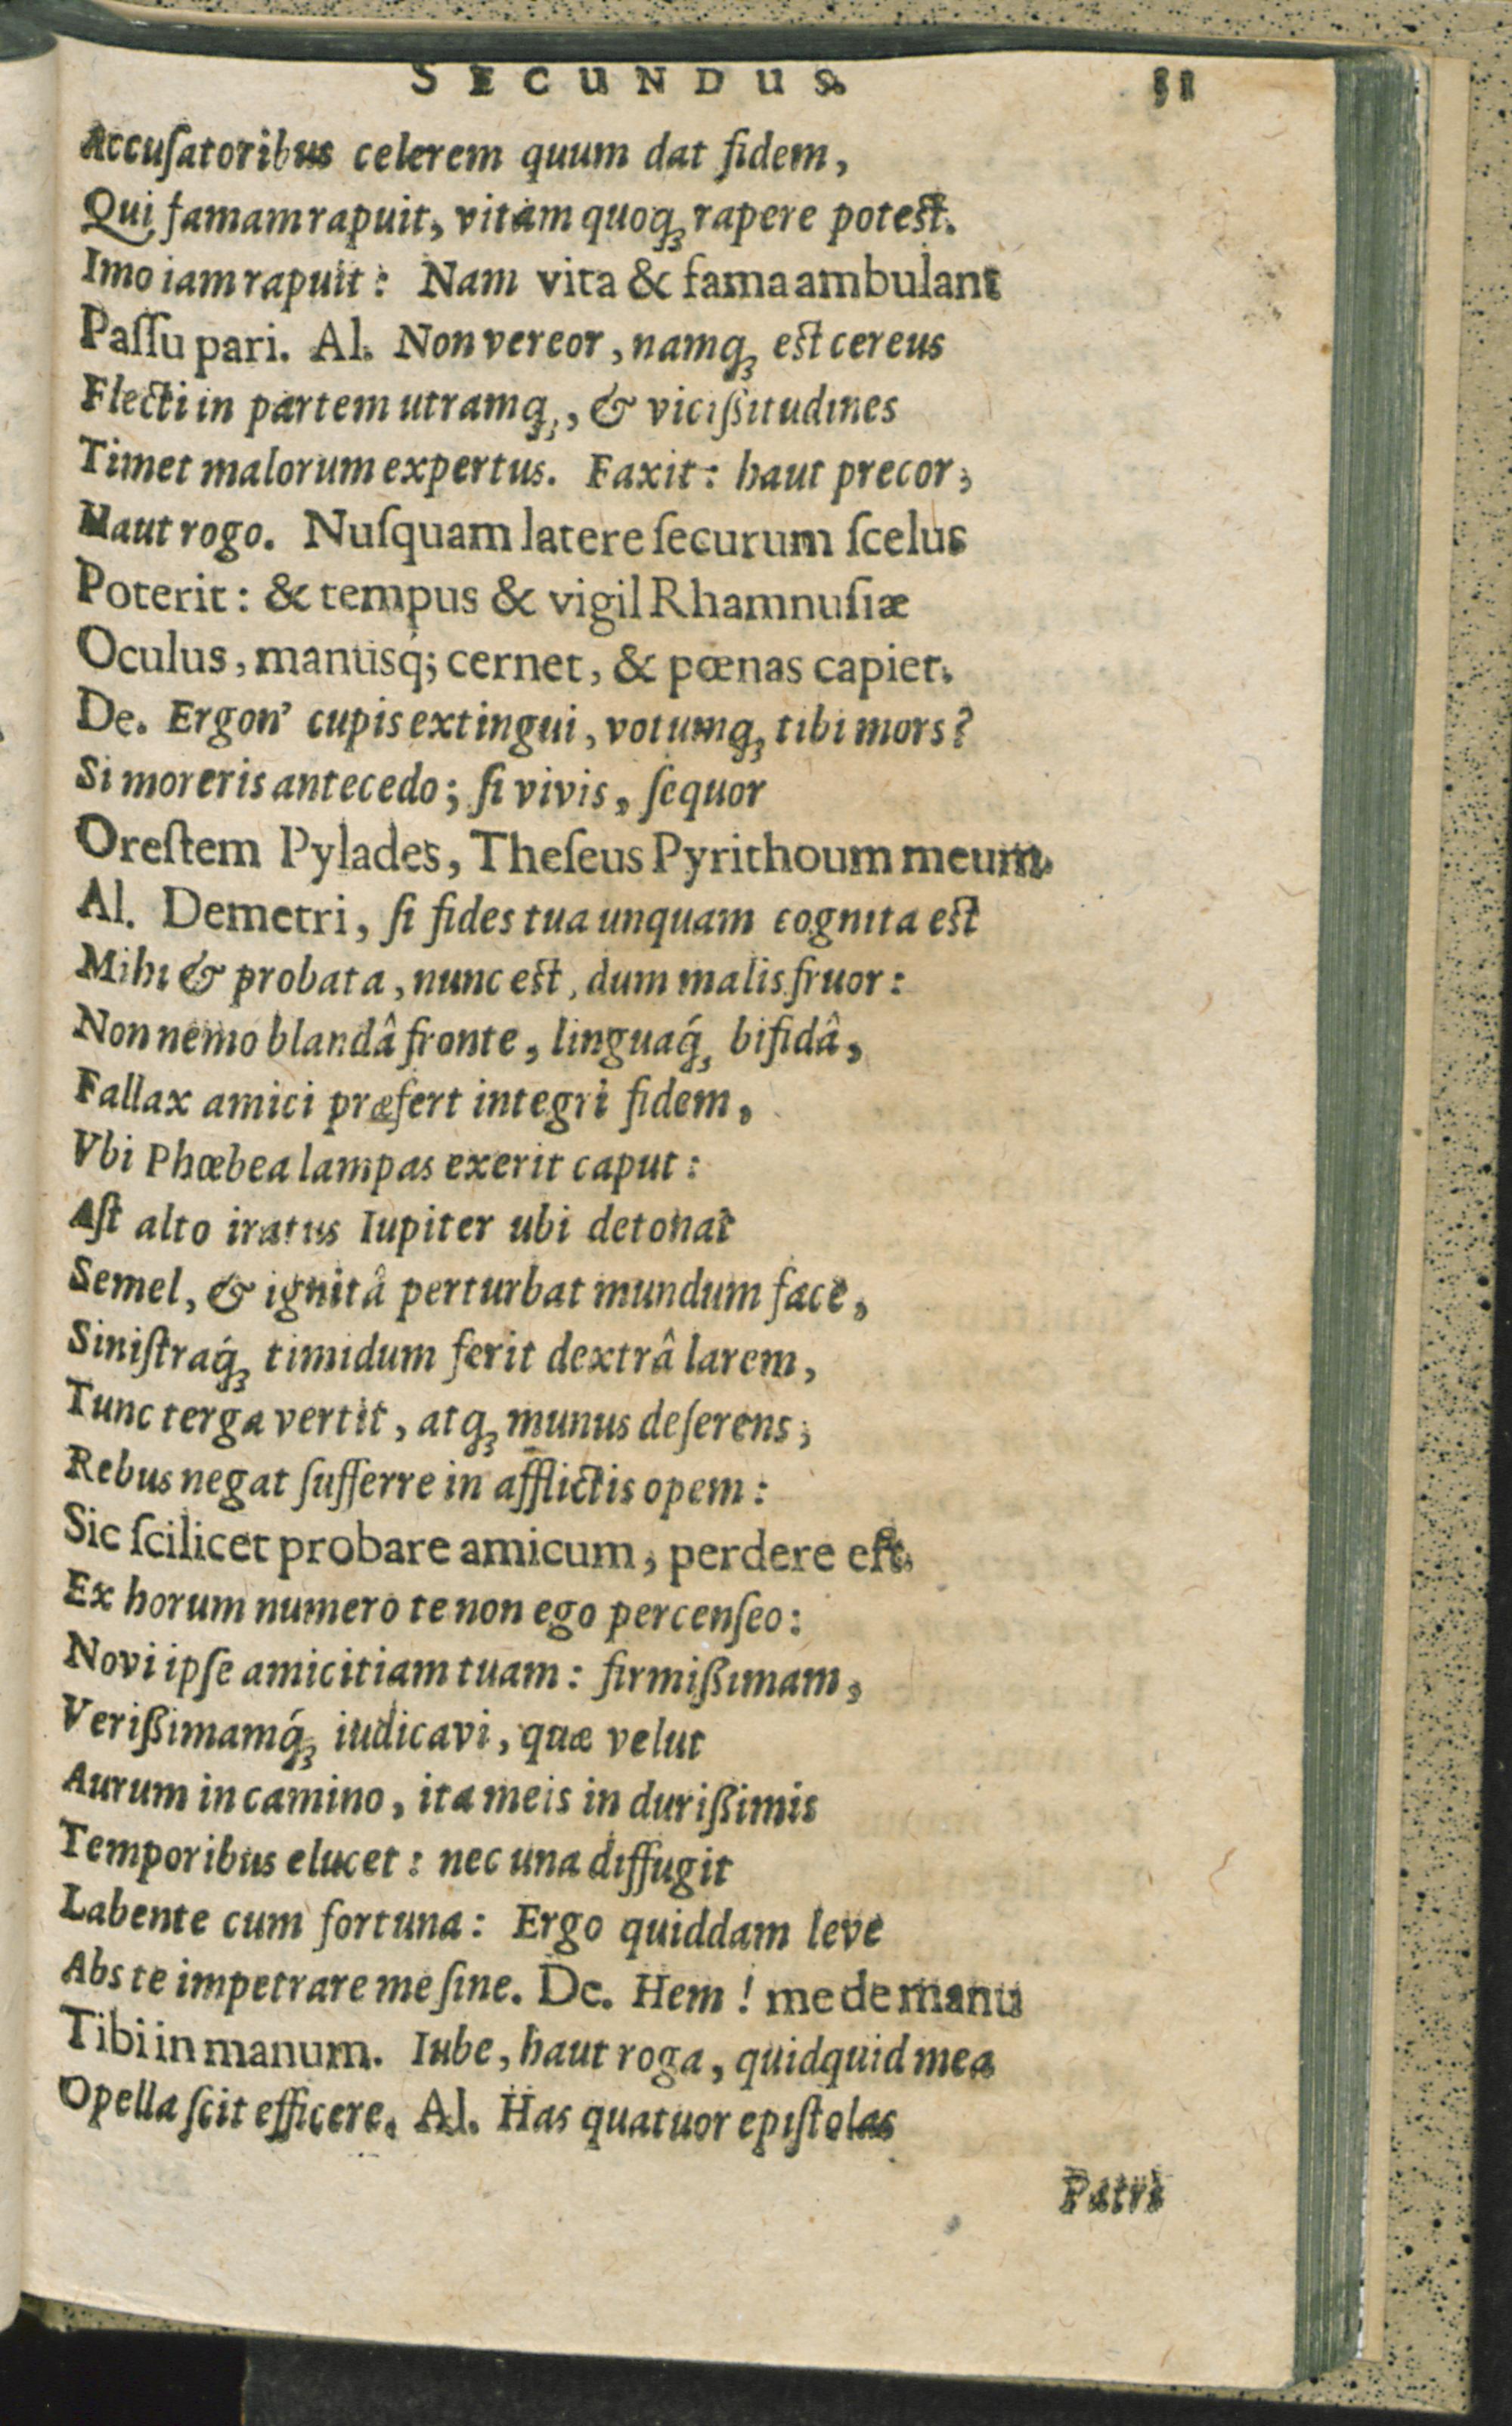 SECUNDUS. 31
Accuſatoribus celerem quum dat fidem,
Qui famam rapuit, vitam quoq́ꝫ rapere potest.
Imo iam rapuit: Nam vita & fama ambulant
Paſſu pari. Al. Non vereor, namqꝫ est cereus
Flecti in partem utramqꝫ, & viciſſitudines
Timet malorum expertus. Faxit: haut precor;
Haut rogo. Nuſquam latere ſecurum ſcelus
Poterit: & tempus & vigil Rhamnuſiæ
Oculus, manusq́; cernet, & pœnas capiet.
De. Ergon' cupis extingui, votumqꝫ tibi mors?
Si moreris antecedo; ſi vivis, ſequor
Oreſtem Pylades, Theſeus Pyrithoum meum.
Al. Demetri, ſi fides tua unquam cognita est
Mihi & probata, nunc est, dum malis fruor:
Non nemo blandâ fronte, linguaq́ꝫ bifidâ,
Fallax amici præfert integri fidem,
Vbi Phœbea lampas exerit caput:
Aſt alto iratus Iupiter ubi detonat
Semel, & ignitâ perturbat mundum face,
Siniſtraq́ꝫ timidum ferit dextrâ larem,
Tunc terga vertit, atqꝫ munus deſerens;
Rebus negat ſufferre in afflictis opem:
Sic ſcilicet probare amicum, perdere eſt.
Ex horum numero te non ego percenſeo:
Novi ipſe amicitiam tuam: firmißimam,
Verißimamq́ꝫ iudicavi, quæ velut
Aurum in camino, ita meis in durißimis
Temporibus elucet: nec una diffugit
Labente cum fortuna: Ergo quiddam leve
Abs te impetrare me ſine. De. Hem! me de manu
Tibi in manum. Iube, haut roga, quidquid mea
Opella ſcit efficere. Al. Has quatuor epiſtolas
Patri